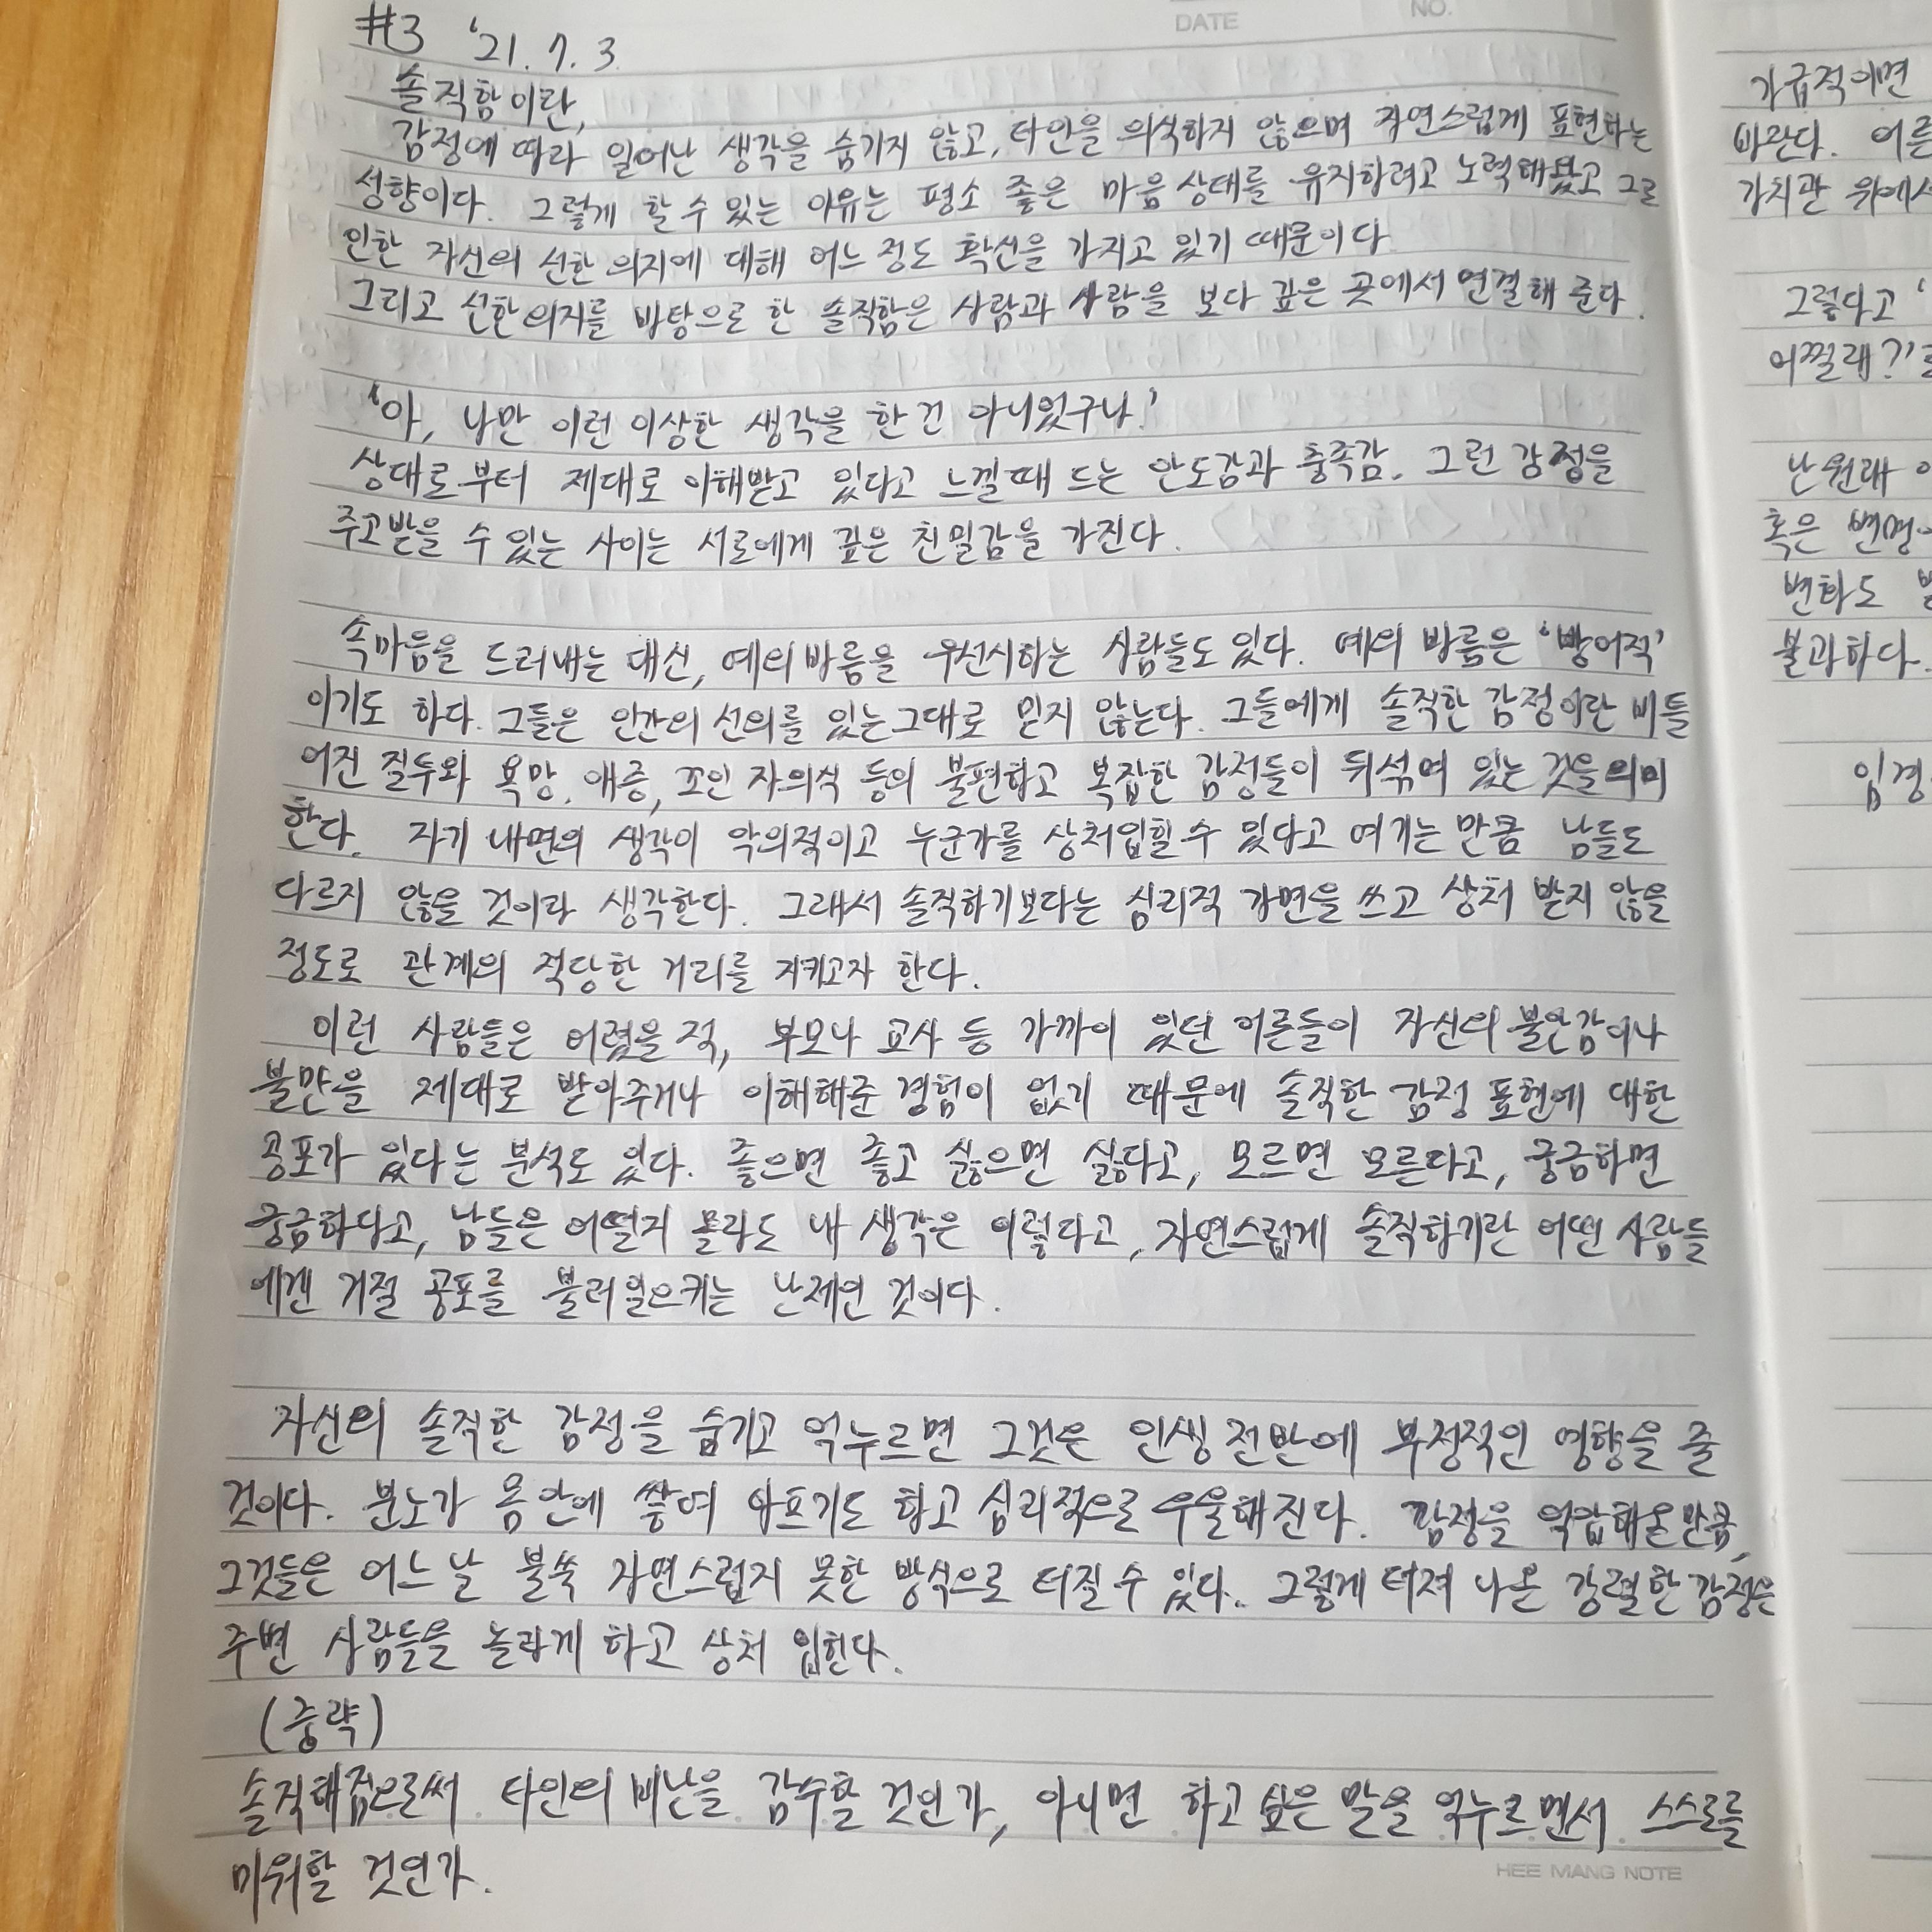 DATE
NO.
#3 '21. 7. 3.
솔직함이란,
감정에 따라 일어난 생각을 숨기지 않고, 타인을 의식하지 않으며 자연스럽게 표현하는
성향이다. 그렇게 할 수 있는 이유는 평소 좋은 마음상태를 유지하려고 노력해왔고 그로
인한 자신의 선한 의지에 대해 어느 정도 확신을 가지고 있기 때문이다
그리고 선한의지를 바탕으로 한 솔직함은 사람과 사람을 보다 깊은 곳에서 연결해 준다.
'아, 나만 이런 이상한 생각을 한 건 아니었구나.'
상대로부터 제대로 이해받고 있다고 느낄 때 드는 안도감과 충족감. 그런 감정을
주고받을 수 있는 사이는 서로에게 깊은 친밀감을 가진다.
속마음을 드러내는 대신, 예의바름을 우선시하는 사람들도 있다. 예의 바름은 '방어적'
이기도 하다. 그들은 인간의 선의를 있는그대로 믿지 않는다. 그들에게 솔직한 감정이란 비틀
어진 질투와 욕망, 애증, 꼬인 자의식 등의 불편하고 복잡한 감정들이 뒤섞여 있는 것을 의미
한다. 자기 내면의 생각이 악의적이고 누군가를 상처입힐 수 있다고 여기는 만큼 남들도
다르지 않을 것이라 생각한다. 그래서 솔직하기보다는 심리적 가면을 쓰고 상처 받지 않을
정도로 관계의 적당한 거리를 지키고자 한다.
이런 사람들은 어렸을 적, 부모나 교사 등 가까이 있던 어른들이 자신의 불안감이나
불만을 제대로 받아주거나 이해해준 경험이 없기 때문에 솔직한 감정 표현에 대한
공포가 있다는 분석도 있다. 좋으면 좋고 싫으면 싫다고, 모르면 모른다고, 궁금하면
궁금하다고, 남들은 어떨지 몰라도 내 생각은 이렇다고, 자연스럽게 솔직하기란 어떤 사람들
에겐 거절 공포를 불러일으키는 난제인 것이다.
자신의 솔직한 감정을 숨기고 억누르면 그것은 인생 전반에 부정적인 영향을 줄
것이다. 분노가 몸 안에 쌓여 아프기도 하고 심리적으로 우울해진다. 감정을 억압해온만큼,
그것들은 어느 날 불쑥 자연스럽지 못한 방식으로 터질 수 있다. 그렇게 터져 나온 강렬한 감정은
주변 사람들을 놀라게 하고 상처 입힌다.
(중략)
솔직해짐으로써 타인의 비난을 감수할 것인가, 아니면 하고 싶은 말을 억누르면서 스스로를
미워할 것인가.
HEE MANG NOTE
가급적이면
바란다. 어른
가치관 위에서
그렇다고 '
어쩔래?'
난 원래
혹은 변명
변화도
불과하다.
임경